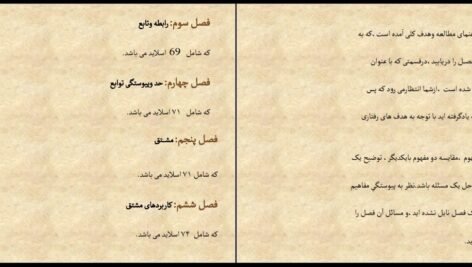 نمای مطالعه وهدف کلی آمده است ،که به
صل را دریابید ،درقسمتی که با عنوان
شده است ،ازشما انتظارمی رود که پس
یادگرفته اید با توجه به هدف های رفتاری
وم ،مقایسه دو مفهوم بایکدیگر ، توضیح یک
حل یک مسئله باشد.نظر به پیوستگی مفاهیم
ک فصل نایل نشده اید ،و مسائل آن فصل را
ید.
فصل سوم: رابطه وتابع
که شامل 69 اسلاید می باشد.
فصل چهارم: حد وپیوستگی توابع
که شامل ۷۱ اسلاید می باشد.
فصل پنجم: مشتق
که شامل ۷۱ اسلاید می باشد.
فصل ششم: کاربردهای مشتق
که شامل ۷۴ اسلاید می باشد.